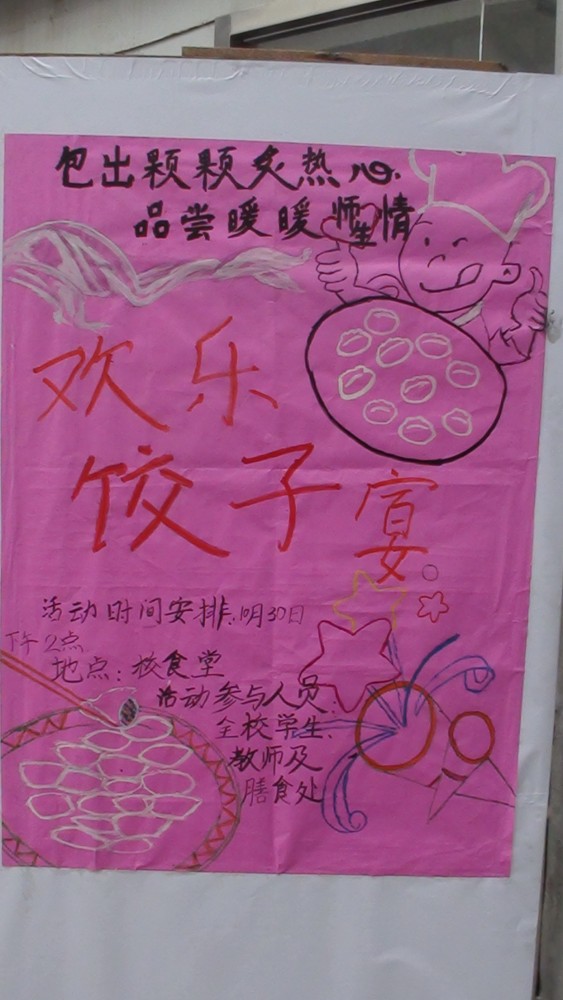 包出颗颗炙热心.
品尝暖暖师生情
欢乐
饺子宴。
活动时间安排:10月30日
下午2点
地点:校食堂
活动参与人员:
全校学生、
教师及
膳食处